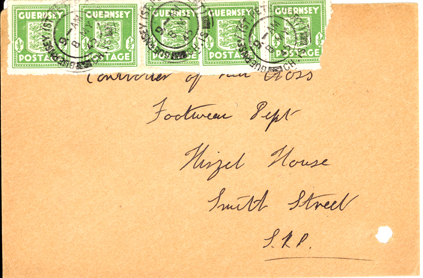 GUERNSEY GUERNSEY GUERNSEY GUERNSEY GUERNSEY
POSTAGE POSTAGE POSTAGE POSTAGE POSTAGE
Controller of
Footwear Dept
House
Smith Street
S.P.P.